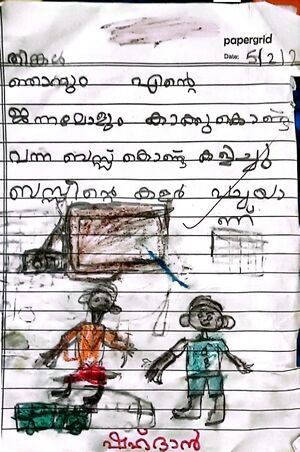 papergrid
Date: 5/2/2
തിങ്കൾ
ഞാനും എന്റെ
കാക്കുകൊണ്ട്
വന്ന ബസ്സ് കൊണ്ട് കളിച്ചു
ബസ്സിന്റെ കളർ പച്ചയാ
ണ്
ഷഹ്ദാൻ